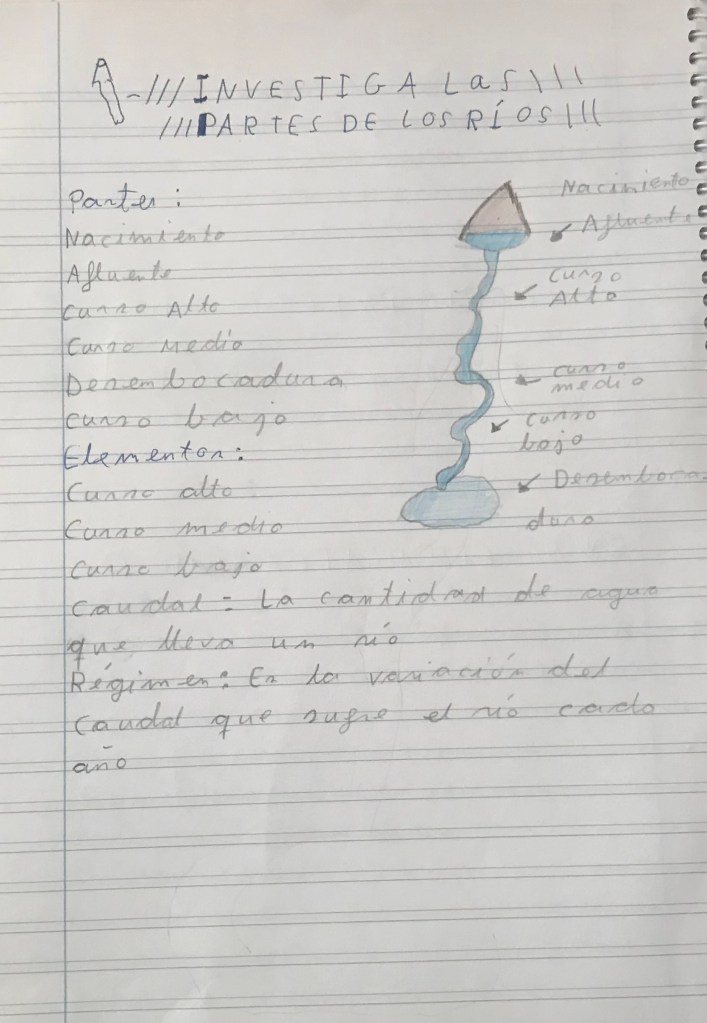 1-///INVESTIGA LaS\\\
///PARTES DE LOS RÍOS\\\
Partes:
Nacimiento
Afluente
Curso Alto
Curso Medio
Desembocadura
curso bajo
Elementos:
Curso alto
Curso medio
curso bajo
Caudal = La cantidad de agua
que lleva un río
Régimen: Es la variación del
Caudal que sufre el río cada
año
Nacimiento
Afluente
Curso
Alto
curso
medio
curso
bajo
Desemboca
dura